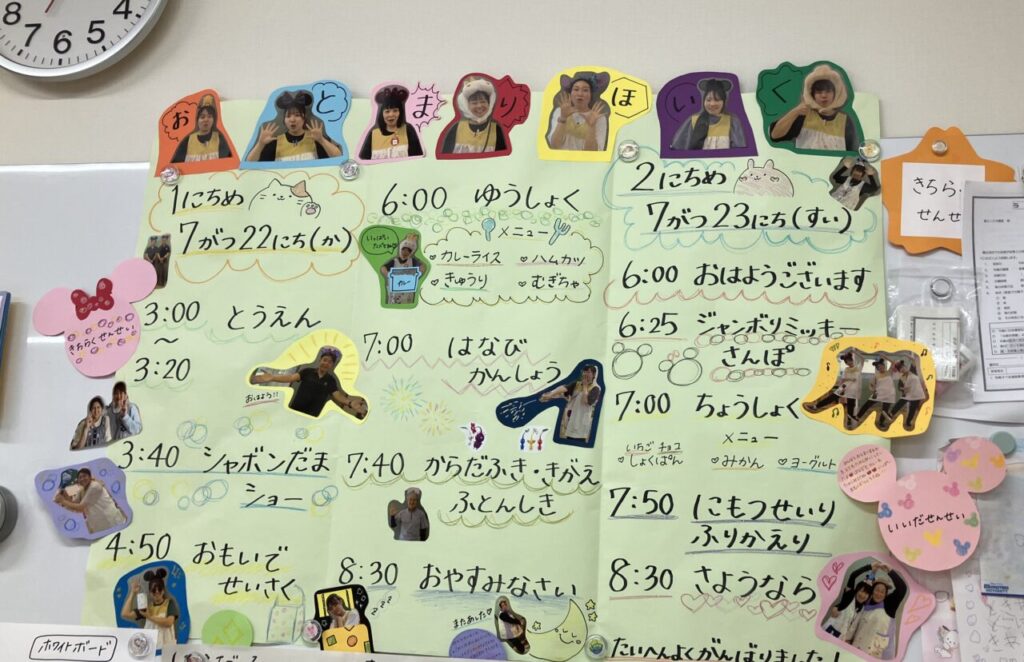 8 7 6 5 4
おとまりほいく
1にちめ
7がつ22にち(か)
3:00 とうえん
～
3:20
おはよう!!
3:40 シャボンだま
ショー
4:50 おもいで
せいさく
6:00 ゆうしょく
メニュー
カレーライス ハムカツ
きゅうり むぎちゃ
カレー
7:00 はなび
かんしょう
7:40 からだふき・きがえ
ふとんしき
8:30 おやすみなさい
zzz
またあした
2にちめ
7がつ23にち(すい)
6:00 おはようございます
6:25 ジャンボリミッキー
さんぽ
7:00 ちょうしょく
メニュー
いちご チョコ
しょくぱん みかん ヨーグルト
7:50 にもつせいり
ふりかえり
8:30 さようなら
たいへんよくがんばりました!
きちら
せんせ
いいだせんせい
ホワイトボード